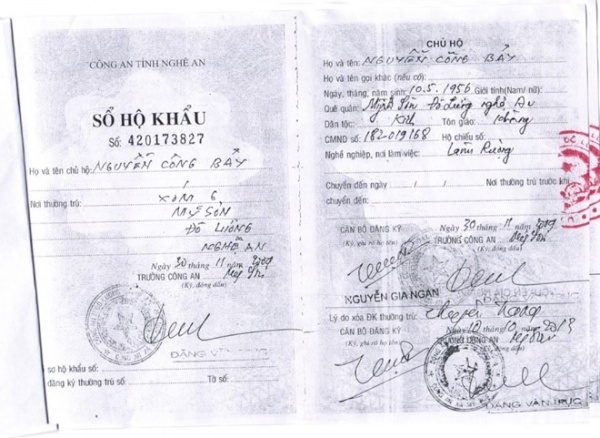 CÔNG AN TỈNH NGHỆ AN
SỔ HỘ KHẨU
Số: 420173827
Họ và tên chủ hộ: NGUYỄN CÔNG BẢY
Nơi thường trú: XÓM 6
MỸ SƠN
ĐÔ LƯƠNG
NGHỆ AN
Ngày 30 tháng 11 năm 2009
TRƯỞNG CÔNG AN
(Ký, đóng dấu)
ĐẶNG VĂN
sơ hộ khẩu số:
đăng ký thường trú số: Tờ số:
CHỦ HỘ
Họ và tên: NGUYỄN CÔNG BẢY
Họ và tên gọi khác (nếu có):
Ngày, tháng, năm sinh: 10.5.1956 Giới tính(Nam/ nữ):
Quê quán: Mỹ Sơn Đô Lương Nghệ An
Dân tộc: Kinh Tôn giáo: không
CMND số: 182019168 Hộ chiếu số:
Nghề nghiệp, nơi làm việc: Làm Ruộng
Chuyển đến ngày / / Nơi thường trú trước khi
chuyển đến:
Ngày 30 tháng 11 năm 2009
CÁN BỘ ĐĂNG KÝ TRƯỞNG CÔNG AN
(Ký, ghi rõ họ tên) (Ký, đóng dấu)
NGUYỄN GIA NGAN
Lý do xóa ĐK thường trú:
Ngày 10 tháng 10 năm 2013
CÁN BỘ ĐĂNG KÝ TRƯỞNG CÔNG AN
(Ký, ghi rõ họ tên)
ĐẶNG VĂN